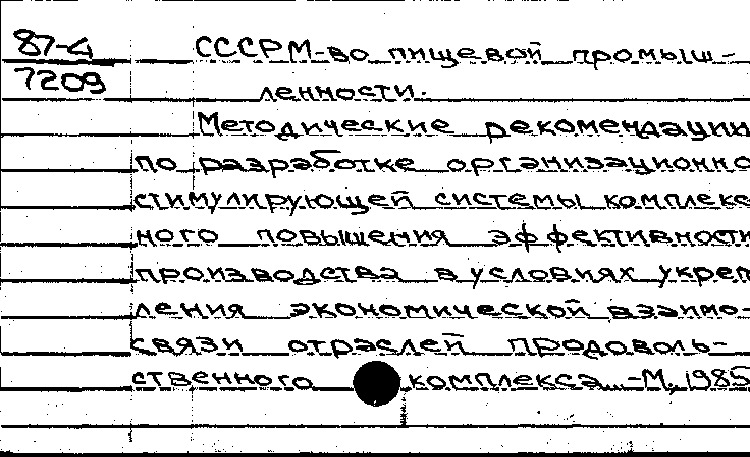 87-4
7209
СССР М-во пищевой промыш-
ленности.
Методические рекомендации
по разработке организационно
стимулирующей системы комплекс
ного повышения эффективности
производства в условиях укреп
ления экономической взаимо-
связи отраслей продоволь-
ственного комплекса. -М., 1985